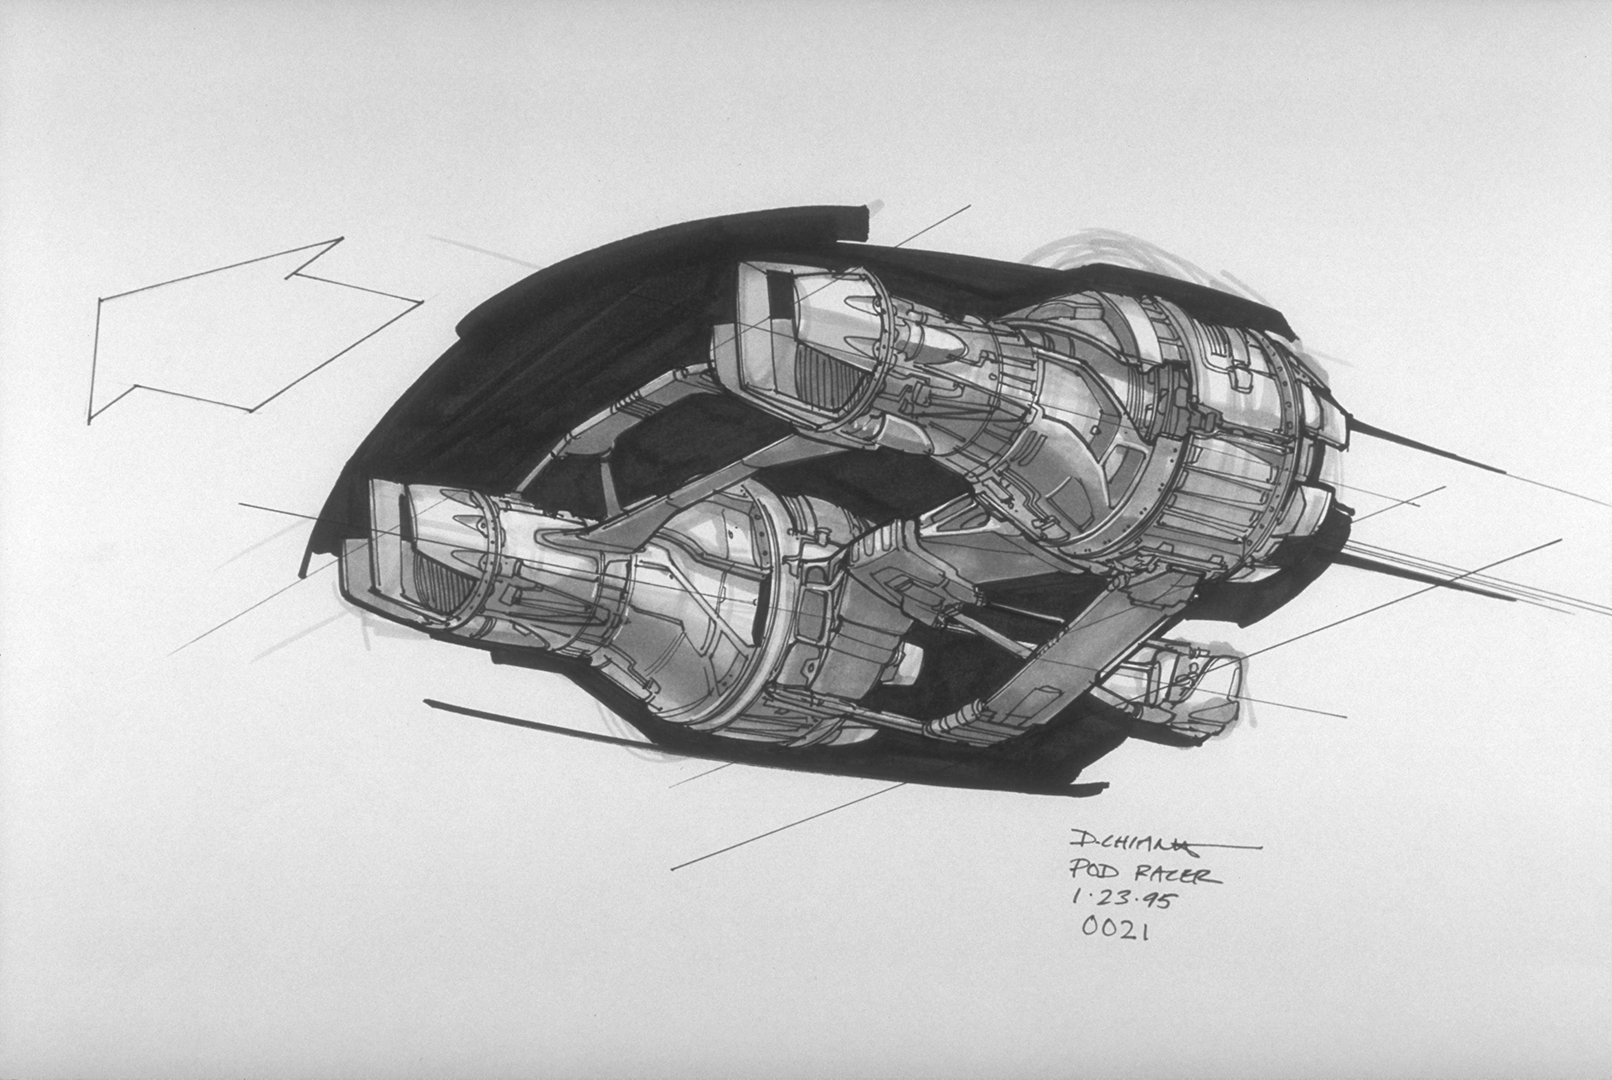 D.CHIANG
POD RACER
1.23.95
0021